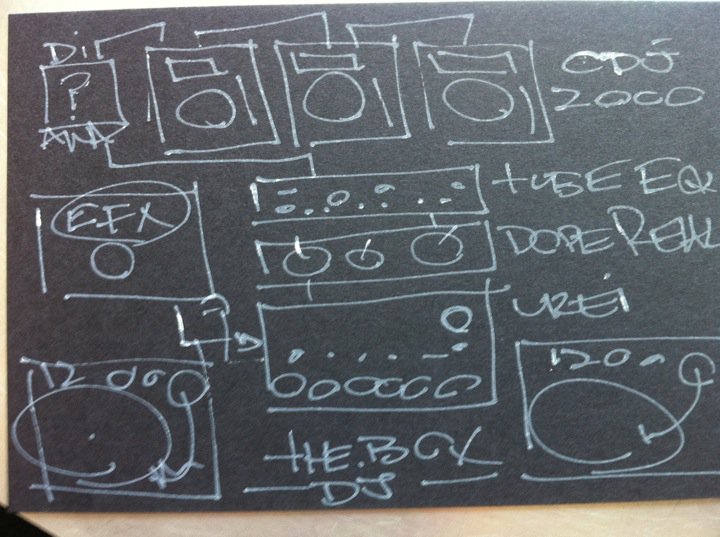 Di
?
ANA
CDJ
2000
TUBE EQ
E.F.X
DOPE REAL
UREi
1200
1200
THE.BOX
DJ